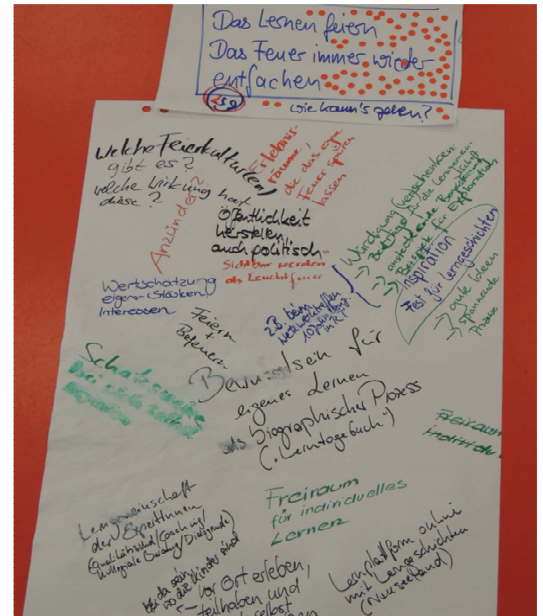 Das Lernen feiern
Das Feuer immer wieder
entfachen
wie kann's gehen?
welche Feierkultur(en)
gibt es?
welche Wirkung hat
diese?
Anzünder?
Erlebnis-
räume,
die das eigene
Feuer spüren
lassen
Öffentlichkeit
herstellen
auch politisch
Sichtbar werden
als Leuchtfeuer
Wertschätzung
eigener (Stärken)
Interessen
Feiern
+
Beteuern
z.B. beim
Netzwerktreffen
10 Jahre
Würdigung
→ Beiträge für die
→ Beispiele für Exploration
Inspiration
Fest für Lerngeschichten
→ gute Ideen
→ spannende
Praxis
Schatzsuche
Bewusstsein für
eigenes Lernen
als biographischer Prozess
("Lerntagebuch")
Freiraum
individu.
Freiraum
für individuelles
Lernen
Lerngemeinschaft
der ExpertInnen
(Qualitätszirkel/Coaching/
kollegiale Beratung/Dialogrunde)
da sein,
wo die Kinder sind
vor Ort erleben,
teilhaben und
selbst
Lernplattform online
mit Lerngeschichten
(Neuseeland)